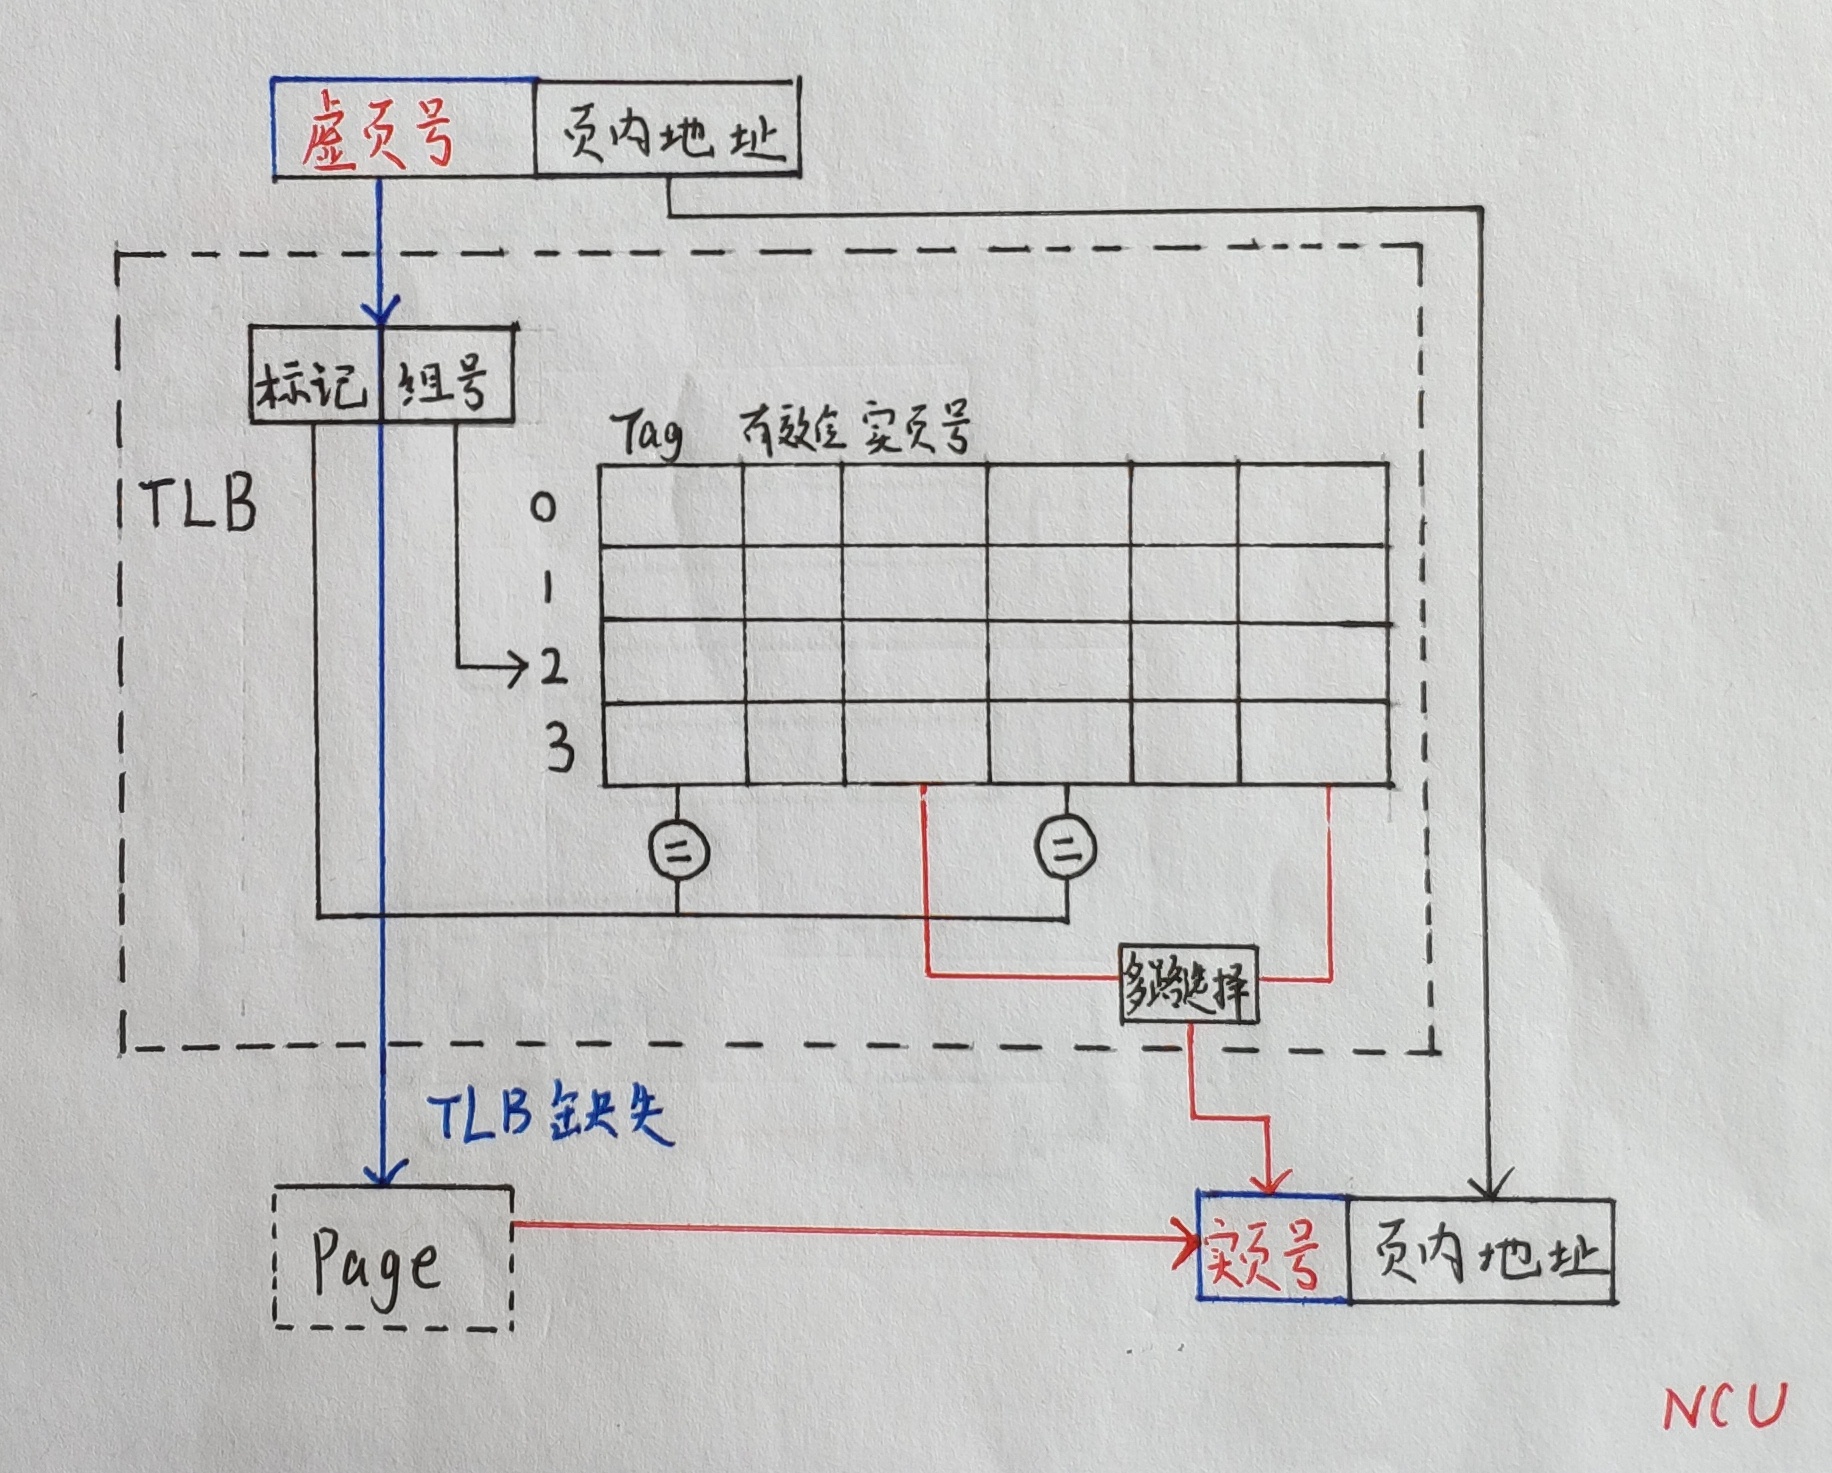 虚页号 页内地址
标记 组号
Tag 有效位 实页号
TLB
0
1
2
3
=
=
多路选择
TLB缺失
Page
实页号 页内地址
NCU